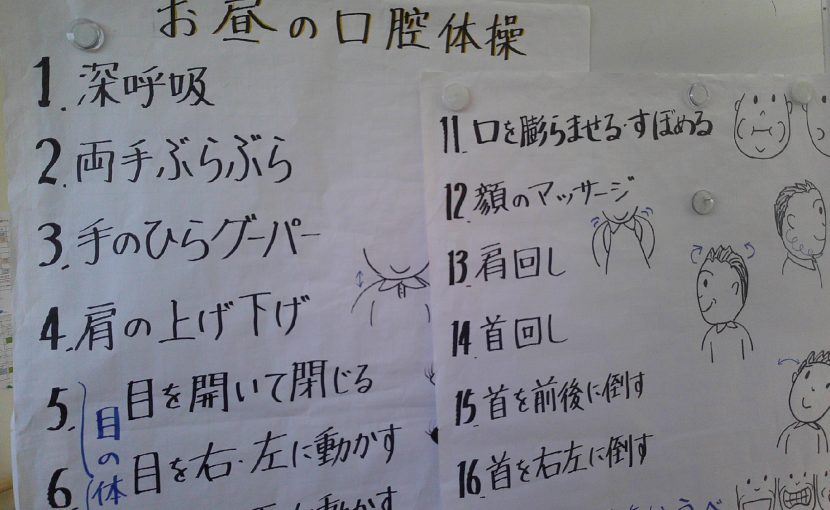 お昼の口腔体操
1.深呼吸
2.両手ぶらぶら
3.手のひらグーパー
4.肩の上げ下げ
5.目を開いて閉じる
目の体
6.目を右・左に動かす
を動かす
11.口を膨らませる・すぼめる
12.顔のマッサージ
13.肩回し
14.首回し
15.首を前後に倒す
16.首を右左に倒す